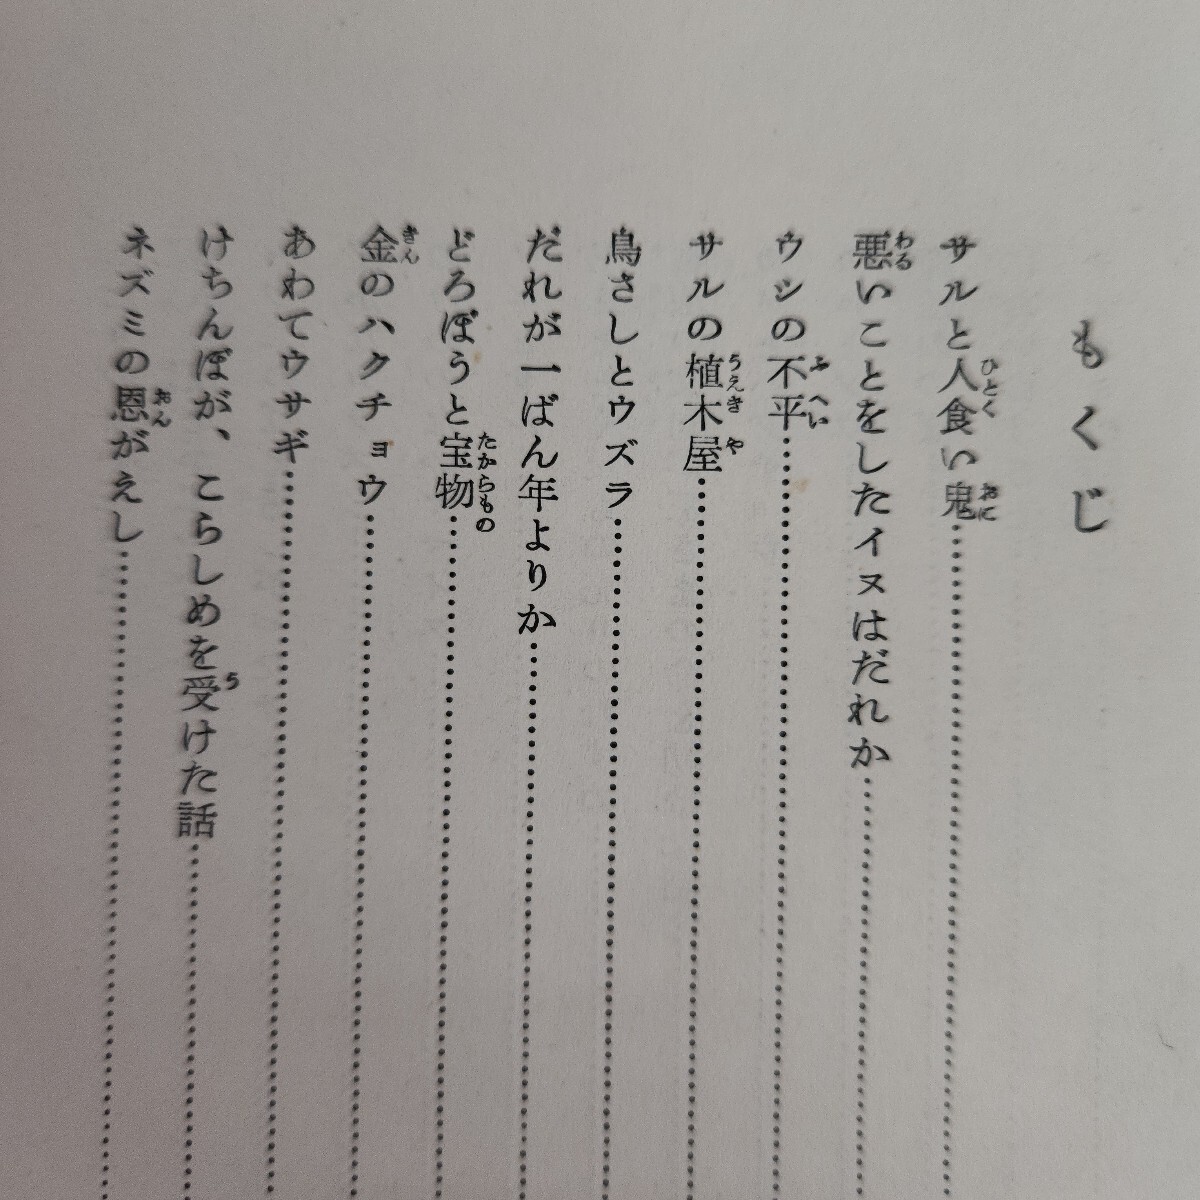 もくじ
サルと人食い鬼
悪いことをしたイヌはだれか
ウシの不平
サルの植木屋
鳥さしとウズラ
だれが一ばん年よりか
どろぼうと宝物
金のハクチョウ
あわてウサギ
けちんぼが、こらしめを受けた話
ネズミの恩がえし